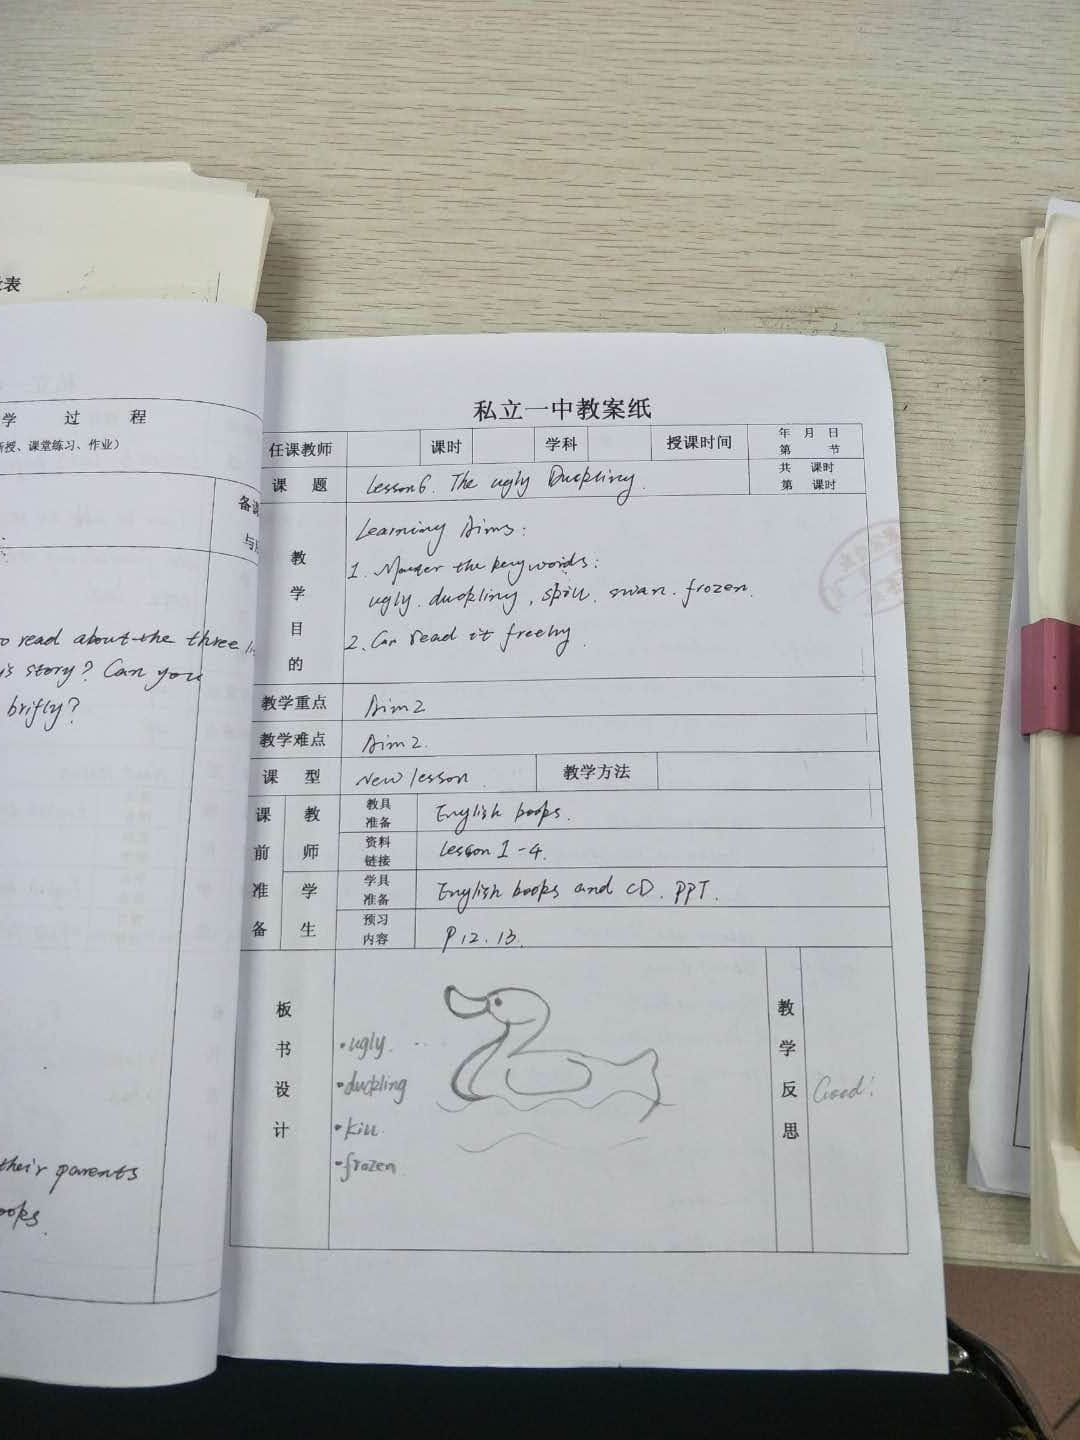 表
学 过 程
新授、课堂练习、作业）
备课
o read about the three
's story? Can you
brifly?
their parents
ooks.
私立一中教案纸
任课教师 课时 学科 授课时间 年 月 日
第 节
课 题 Lesson 6. The ugly Duckling. 共 课时
第 课时
教学目的
Learning Aims:
1. Master the key words:
ugly. duckling, spill. swan. frozen.
2. Can read it freely.
教学重点 Aim 2
教学难点 Aim 2.
课 型 New lesson. 教学方法
课前准备
教师
教具准备 English books.
资料链接 Lesson 1-4.
学生
学具准备 English books and CD. PPT.
预习内容 P12.13.
板书设计
•ugly.
•duckling
•kill
•frozen
教学反思
Good!